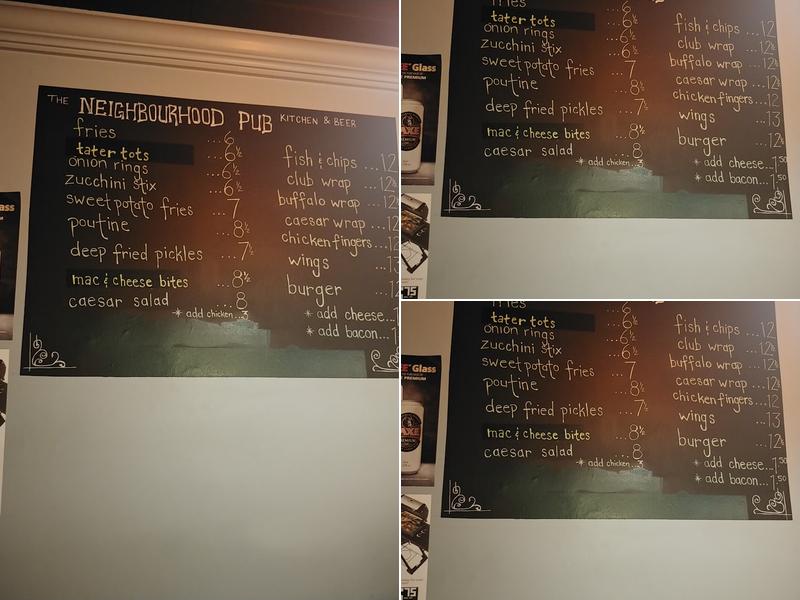 THE NEIGHBOURHOOD PUB KITCHEN & BEER
fries ...6
tater tots ...6½
onion rings ...6½
zucchini stix ...6½
sweet potato fries ...7
poutine ...8½
deep fried pickles ...7½
mac & cheese bites ...8½
caesar salad ...8
* add chicken...3
fish & chips ...12
club wrap ...12
buffalo wrap ...12
caesar wrap ...12
chicken fingers ...12
wings ...13
burger ...12
* add cheese...
* add bacon...1
Glass
fries
tater tots ...6½
onion rings ...6½
zucchini stix ...6½
sweet potato fries 7
poutine ...8½
deep fried pickles ...7½
mac & cheese bites ...8½
caesar salad ...8
* add chicken...3
fish & chips ...12
club wrap ...12½
buffalo wrap ...12½
caesar wrap ...12½
chicken fingers ...12½
wings ...13
burger ...12½
* add cheese...1.50
* add bacon...1.50
Glass
PREMIUM
AXE
fries
tater tots ...6½
onion rings ...6½
zucchini stix ...6½
sweet potato fries 7
poutine ...8½
deep fried pickles ...7½
mac & cheese bites ...8½
caesar salad ...8
* add chicken...3
fish & chips ...12
club wrap ...12½
buffalo wrap ...12½
caesar wrap ...12½
chicken fingers ...12½
wings ...13
burger ...12½
* add cheese...1.50
* add bacon...1.50
Glass
PREMIUM
AXE